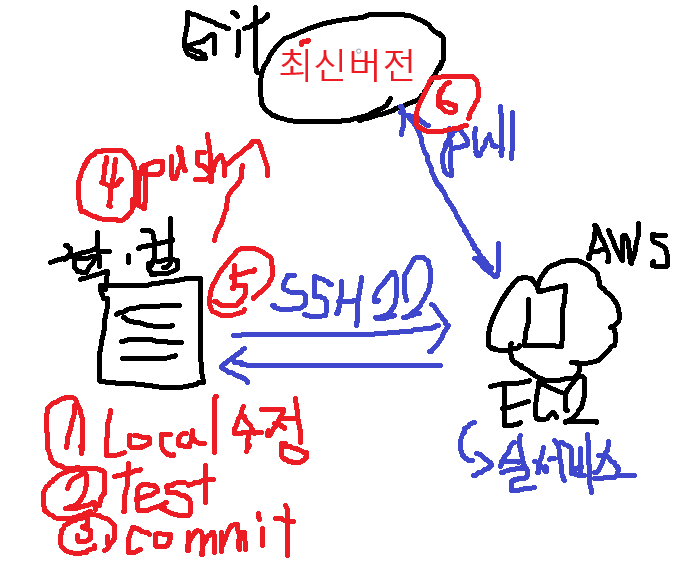 Git
최신버전
⑥
pull
④ push
⑤ SSH 22
AWS
EC2
↳ 실서비스
① Local 수정
② Test
③ commit